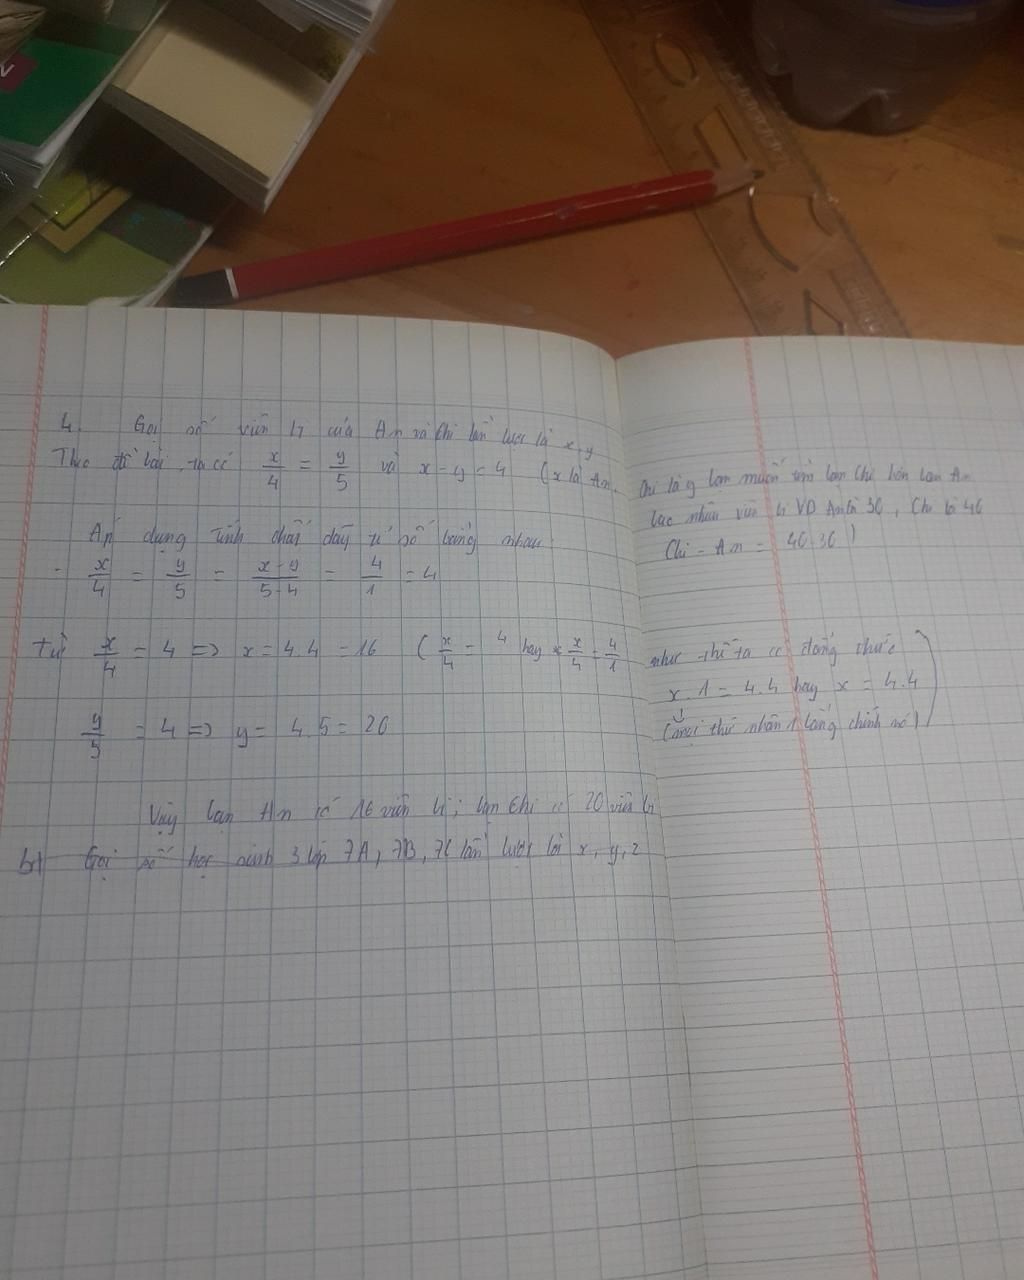 4. Gọi số viên bi của An và Chi lần lượt là x, y
Theo đề bài, ta có x/4 = y/5 và x - y = 4 (x là An. Chi là y bạn muốn tìm bạn Chi hơn bạn An
bao nhiêu viên bi VD An là 36, Chi là 46
Chi - An = 46-36)
Áp dụng tính chất dãy tỉ số bằng nhau:
x/4 = y/5 = x-y/5-4 = 4/1 = 4
Từ x/4 = 4 => x = 4.4 = 16 (x/4 = 4 hay x/4 = 4/1 như thế ta có đẳng thức
x.1 = 4.4 hay x = 4.4
(mọi thứ nhân 1 bằng chính nó))
y/5 = 4 => y = 4.5 = 20
Vậy bạn An có 16 viên bi; bạn Chi có 20 viên bi
b) Gọi số học sinh 3 lớp 7A, 7B, 7C lần lượt là x, y, z